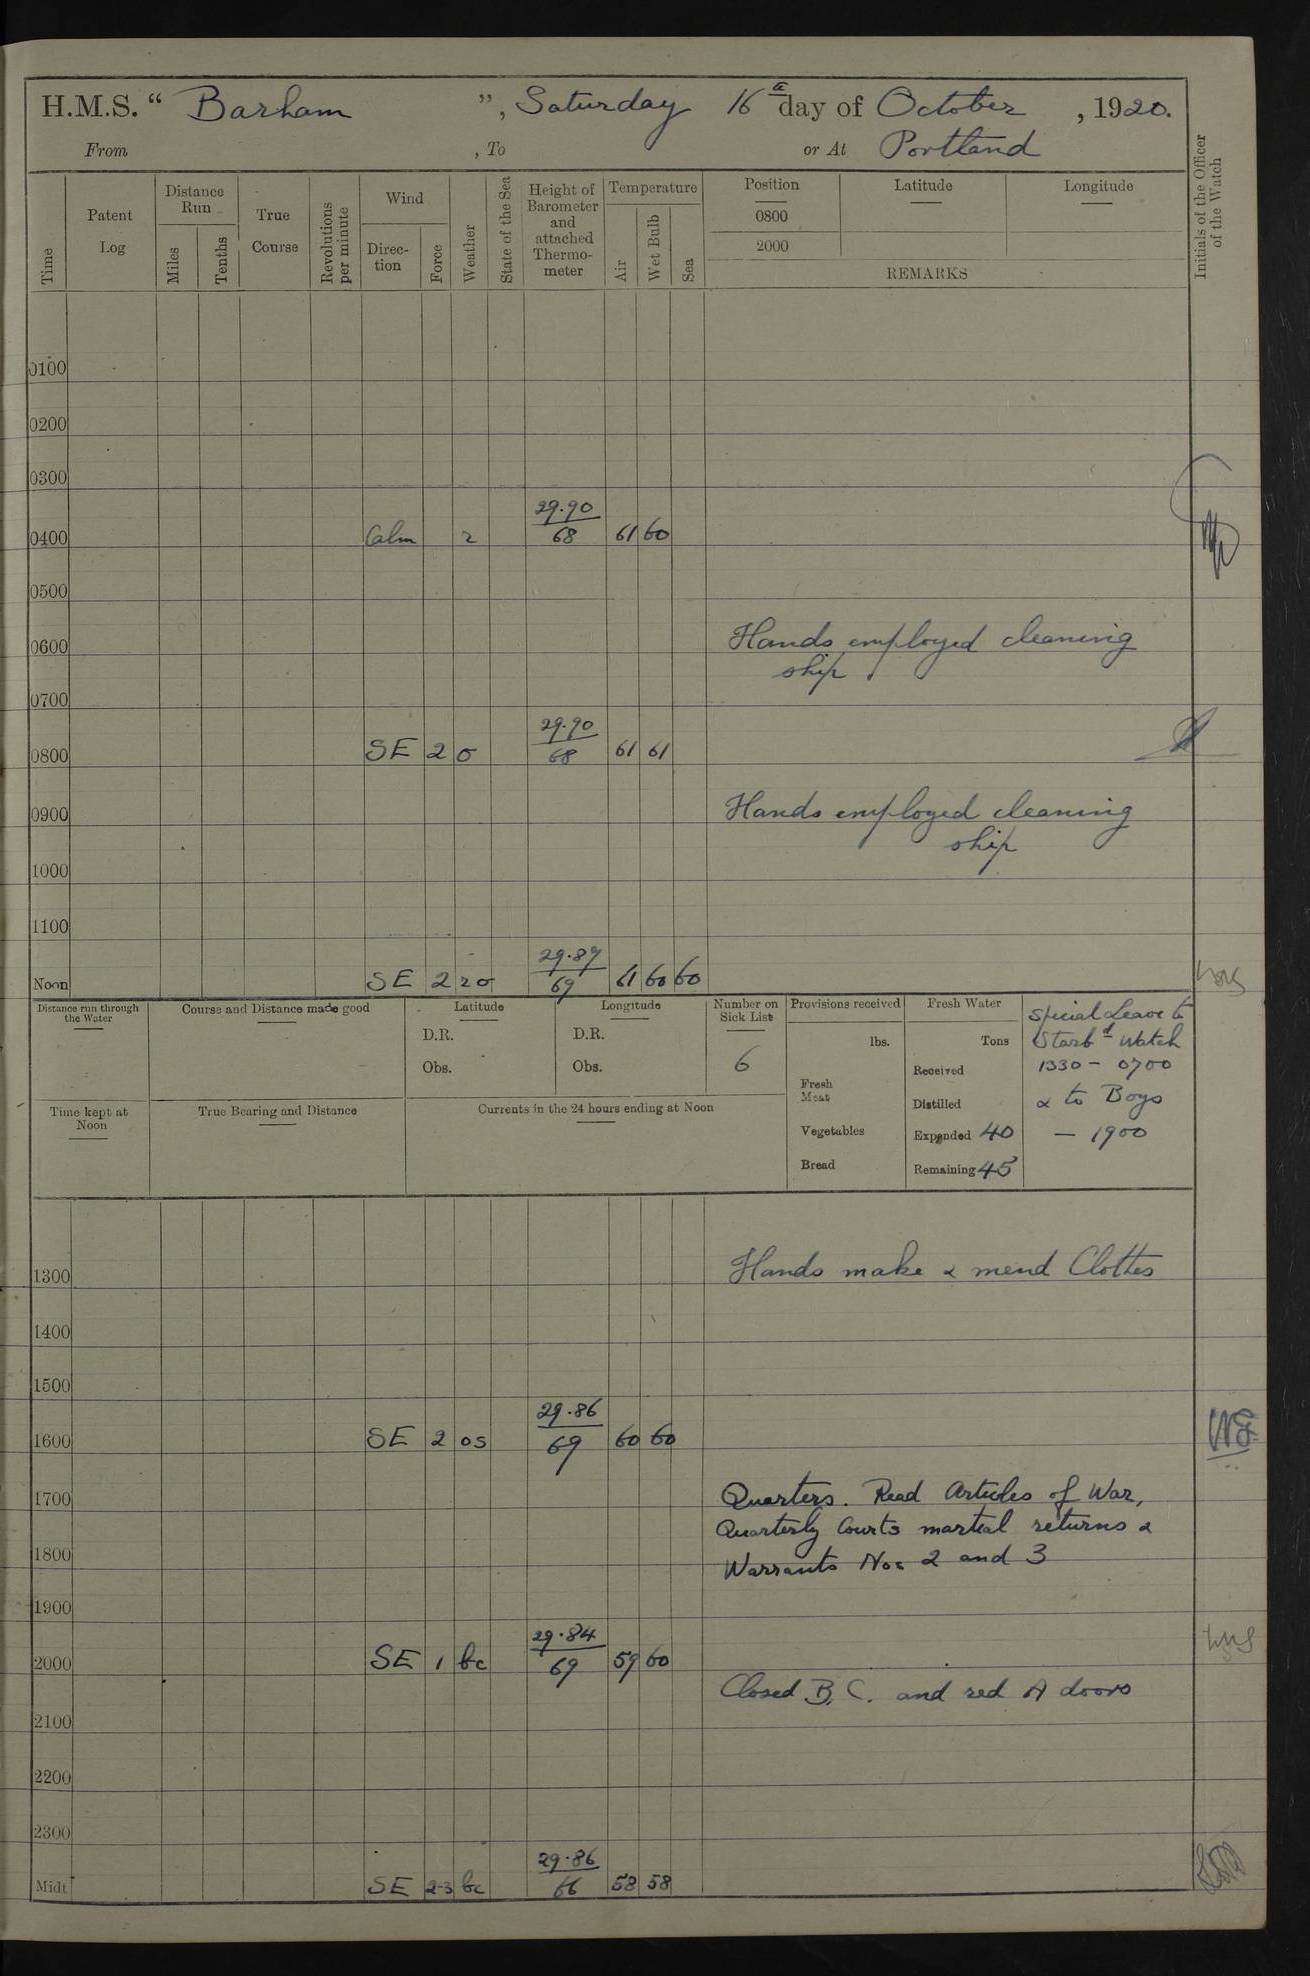 H.M.S. " Barham ", Saturday 16th day of October, 1920.
From , To or At Portland
Time
Patent Log
Distance Run
Miles
Tenths
True Course
Revolutions per minute
Wind
Direc-tion
Force
Weather
State of the Sea
Height of Barometer and attached Thermo-meter
Temperature
Air
Wet Bulb
Sea
Position
0800
2000
Latitude
Longitude
REMARKS
Initials of the Officer of the Watch
0100
0200
0300
0400 Calm r 29.90 68 61 60
0500
0600 Hands employed cleaning
ship.
0700
0800 SE 2 o 29.90 68 61 61
0900 Hands employed cleaning
ship
1000
1100
Noon SE 2 ro 29.87 69 61 60 60
Distance run through the Water
Course and Distance made good
Latitude
D.R.
Obs.
Longitude
D.R.
Obs.
Number on Sick List
6
Provisions received
lbs.
Fresh Meat
Vegetables
Bread
Fresh Water
Tons
Received
Distilled
Expended 40
Remaining 45
Special Leave to
Starbd Watch
1330 - 0700
& to Boys
- 1900
Time kept at Noon
True Bearing and Distance
Currents in the 24 hours ending at Noon
1300 Hands make & mend Clothes
1400
1500
1600 SE 2 os 29.86 69 60 60
1700 Quarters. Read Articles of War,
Quarterly Courts martial returns &
1800 Warrants Nos 2 and 3
1900
2000 SE 1 bc 29.84 69 59 60
Closed B, C. and red A doors
2100
2200
2300
Midt SE 2-3 bc 29.86 66 58 58